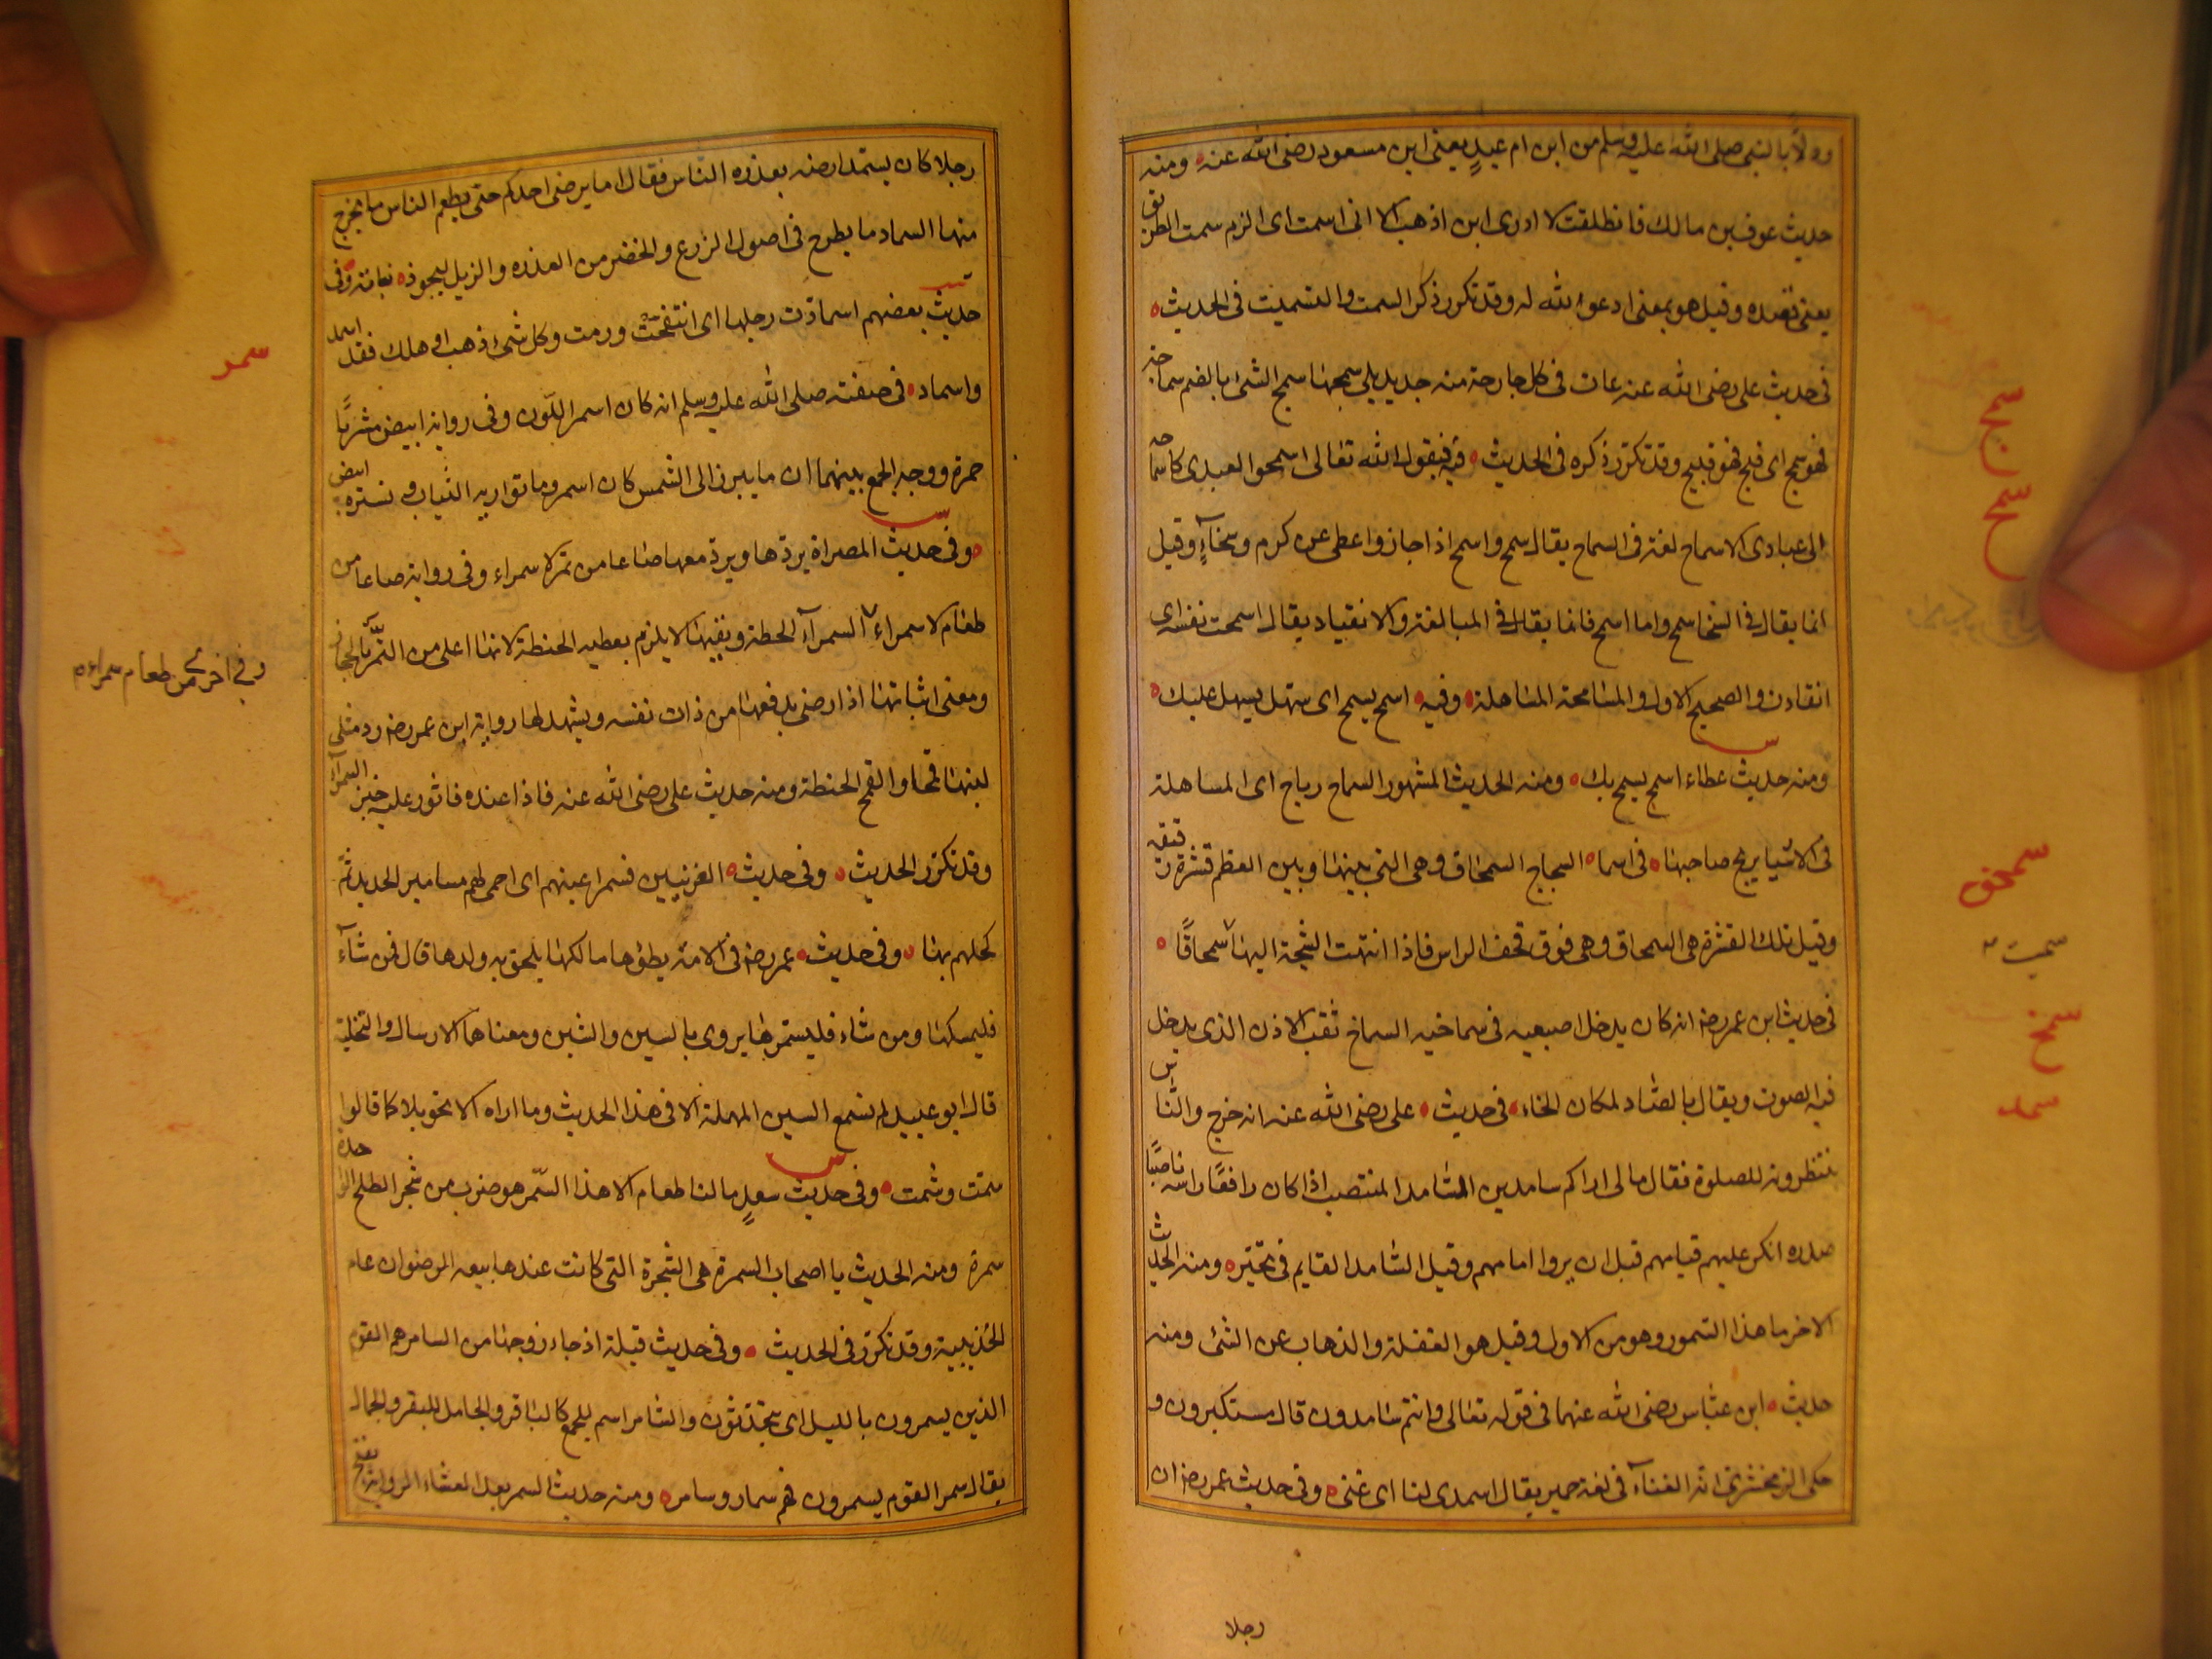 ودلا بالنبى صلى الله عليه وسلم من ابن ام عبدٍ يعنى ابن مسعود رضى الله عنه ومنه
حديث عوف بن مالك فانطلقت لا ادرى اين اذهب الا انى اسمت اى الزم سمت الطريق
يعنى قصده وقيل هو بمعنى ادعو الله له وقد تكرر ذكر السمت والتسميت فى الحديث
فى حديث على رضى الله عنه عاث فى كل جارحة منه جديد بلى سمجها سمج الشئ بالضم سماجة
فهو سمج اى قبح فهو قبيح وقد تكرر ذكره فى الحديث فيه فيقول الله تعالى اسمحوا لعبدى كاسماحه
الى عبادى الاسماح لغة فى السماح يقال سمح واسمح اذا جاد واعطى عن كرم وسخآءٍ وقيل
انما يقال فى السخا سمح واما اسمح فانما يقال فى المبالغة والانقياد يقال اسمحت نفسه اى
انقادت والصحيح الاول والمسامحة المساهلة وفيه اسمح يسمح اى سهل يسهل عليك
ومنه حديث عطاء اسمح يسمح بك ومنه الحديث المشهور السماح رباح اى المساهلة
فى الاشيا يربح صاحبها فى اسما الشجاج السمحاق وهى التى بينها وبين العظم قشرة رقيقة
وقيل تلك القشرة هى السمحاق وهى فوق قحف الراس فاذا انتهت الشجة اليها سمحاقًا
فى حديث ابن عمر رضه انه كان يدخل اصبعيه فى سماخيه السماخ ثقب الاذن الذى يدخل
فيه الصوت ويقال بالصاد لمكان الخاء فى حديث على رضى الله عنه انه خرج والناس
ينتظرونه للصلوة فقال مالى اراكم سامدين السامد المنتصب اذا كان رافعًا راسه ناصبًا
صدره انكر عليهم قيامهم قبل ان يروا امامهم وقيل السامد القايم فى تحيّره ومنه الحديث
الاخر ما هذا السمود وهو من الاول وقيل هو الغفلة والذهاب عن الشئ ومنه
حديث ابن عباس رضى الله عنهما فى قوله تعالى وانتم سامدون قال مستكبرون و
حكى الزمخشرى انه الغنآء فى لغة حمير يقال اسمدى لنا اى غنى وفى حديث عمر رضه ان
رجلا
سمج
سمح
سمحق
سميت
سمخ
سمد
رجلا كان يسمد ارضه بعذرة الناس فقال اما يرضى احدكم حتى يطعم الناس ما يخرج
منها السماد ما يطرح فى اصول الزرع والخضر من العذرة والزبل ليجود نباته وفى
حديث بعضهم اسمادّت رجلها اى انتفخت وورمت وكل شئ ذهب او هلك فقد اسمد
واسماد فى صفته صلى الله عليه وسلم انه كان اسمر اللون وفى رواية ابيض مشربًا
حمرة ووجه الجمع بينهما ان ما يبرز الى الشمس كان اسمر وما تواريه الثياب وتستره ابيض
وفى حديث المصراة يردّها ويردّ معها صاعا من تمر لا سمراء وفى رواية صاعا من
طعام لا سمراء السمرآء الحنطة ونفيها لا يلزم بعطيه الحنطة لانها اعلى من التمر بالحجاز
ومعنى اثباتها اذا رضى بدفعها من ذات نفسه ويشهد لها رواية ابن عمر رضه رد مثلى
لبنها قمحا والقمح الحنطة ومنه حديث على رضى الله عنه فاذا عنده فاثور عليه خبز السمرآء
وقد تكرر الحديث وفى حديث العرنيين فسمر اعينهم اى احمى لهم مسامير الحديد ثم
كحلهم بها وفى حديث عمر رضه فى الامة يطؤها مالكها يلحق به ولدها قال فمن شآء
فليمسكها ومن شاء فليسمرها يروى بالسين والشين ومعناهما الارسال والتخلية
قال ابو عبيد لم نسمع السين المهملة الا فى هذا الحديث وما اراه الا تحويلا كما قالوا
سمت وشمت وفى حديث سعدٍ مالنا طعام الا هذا السّمر هو ضرب من شجر الطلح الواحدة
سمرة ومنه الحديث يا اصحاب السمرة هى الشجرة التى كانت عندها بيعه الرضوان عام
الحديبية وقد تكرر فى الحديث وفى حديث قيلة اذ جاء زوجها من السامر هم القوم
الذين يسمرون بالليل اى يتحدثون والسامر اسم للجمع كالباقر والجامل للبقر والجمال
يقال سمر القوم يسمرون فهم سمار وسامر ومنه حديث السمر بعد العشاء الرواية بفتح
سمر
وفى اخرى من طعام سمراء